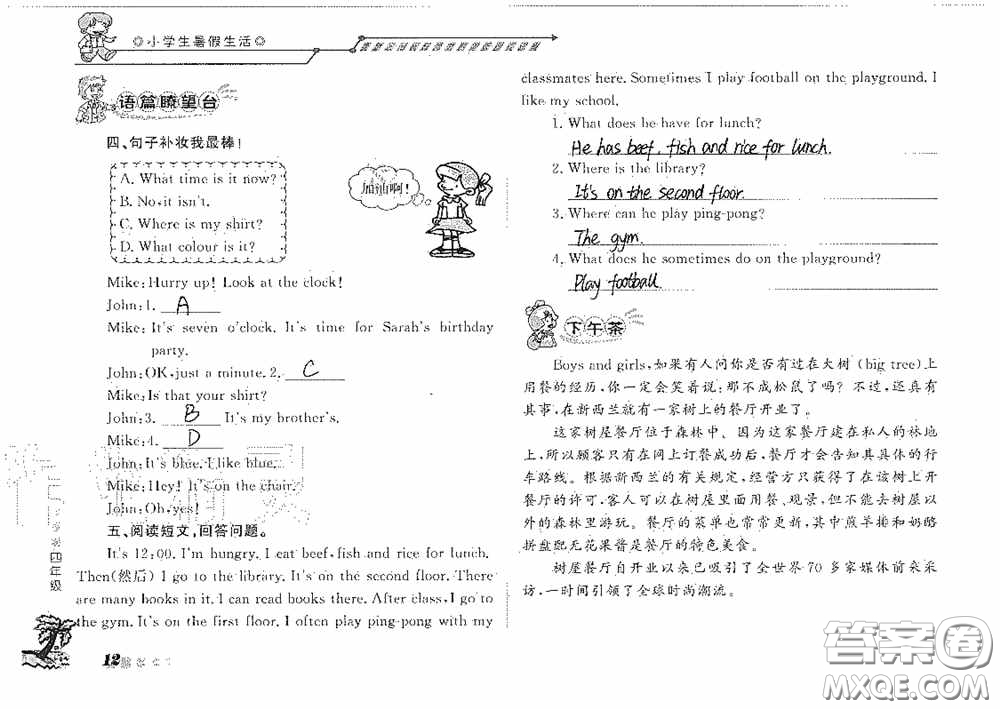 ◎小学生暑假生活◎
语篇瞭望台
四、句子补妆我最棒!
A. What time is it now?
B. No, it isn't.
C. Where is my shirt?
D. What colour is it?
加油啊!
Mike: Hurry up! Look at the clock!
John: 1. A
Mike: It's seven o'clock. It's time for Sarah's birthday
party.
John: OK, just a minute. 2. C
Mike: Is that your shirt?
John: 3. B It's my brother's.
Mike: 4. D
John: It's blue. I like blue.
Mike: Hey! It's on the chair.
John: Oh, yes!
五、阅读短文,回答问题。
It's 12:00. I'm hungry. I eat beef, fish and rice for lunch.
Then(然后) I go to the library. It's on the second floor. There
are many books in it. I can read books there. After class, I go to
the gym. It's on the first floor. I often play ping-pong with my
四年级
12
classmates here. Sometimes I play football on the playground. I
like my school.
1. What does he have for lunch?
He has beef, fish and rice for lunch.
2. Where is the library?
It's on the second floor.
3. Where can he play ping-pong?
The gym.
4. What does he sometimes do on the playground?
Play football.
下午茶
Boys and girls,如果有人问你是否有过在大树(big tree)上
用餐的经历,你一定会笑着说:那不成松鼠了吗?不过,还真有
其事,在新西兰就有一家树上的餐厅开业了。
这家树屋餐厅位于森林中、因为这家餐厅建在私人的林地
上,所以顾客只有在网上订餐成功后,餐厅才会告知其具体的行
车路线。根据新西兰的有关规定,经营方只获得了在该树上开
餐厅的许可,客人可以在树屋里面用餐、观景,但不能在树屋以
外的森林里游玩。餐厅的菜单也常常更新,其中煎羊排和奶酪
拼盘配无花果酱是餐厅的特色美食。
树屋餐厅自开业以来已吸引了全世界 70 多家媒体前来采
访,一时间引领了全球时尚潮流。
答案圈
MXQE.COM